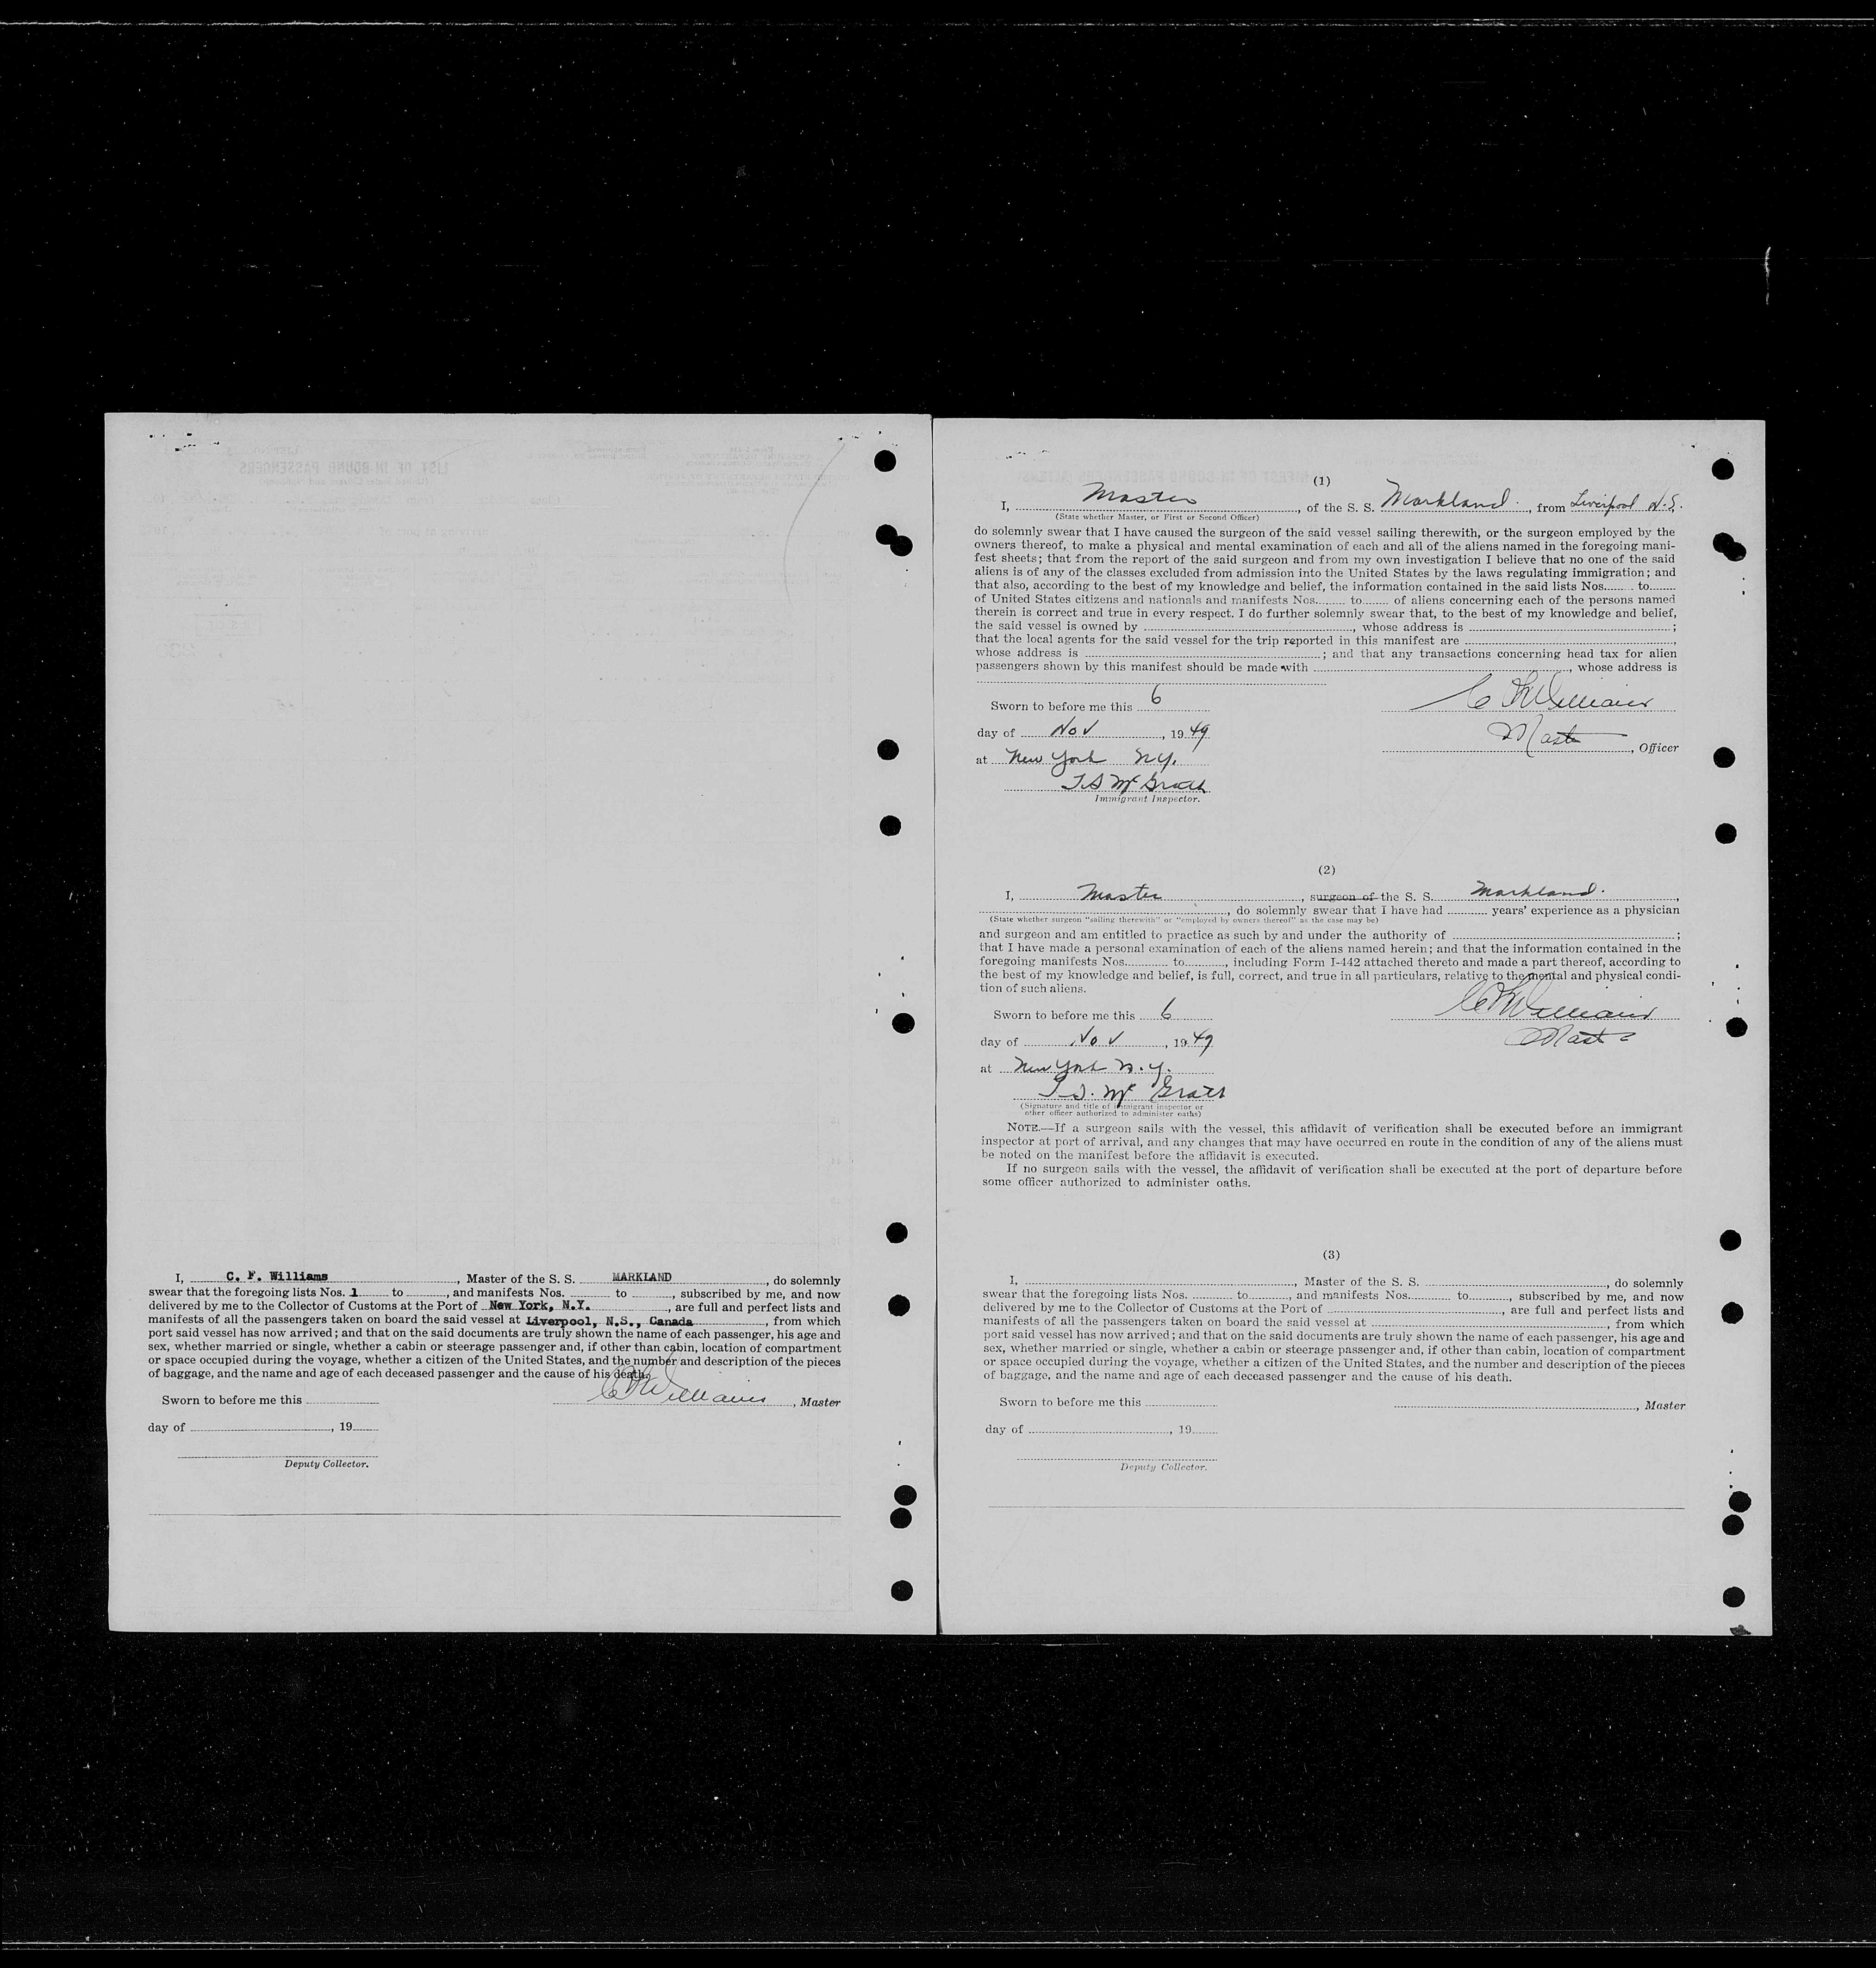 I, C. F. Williams, Master of the S. S. MARKLAND, do solemnly
swear that the foregoing lists Nos. 1 to, and manifests Nos. to, subscribed by me, and now
delivered by me to the Collector of Customs at the Port of New York, N.Y., are full and perfect lists and
manifests of all the passengers taken on board the said vessel at Liverpool, N.S., Canada, from which
port said vessel has now arrived; and that on the said documents are truly shown the name of each passenger, his age and
sex, whether married or single, whether a cabin or steerage passenger and, if other than cabin, location of compartment
or space occupied during the voyage, whether a citizen of the United States, and the number and description of the pieces
of baggage, and the name and age of each deceased passenger and the cause of his death.
Sworn to before me this
C F Williams, Master
day of, 19
Deputy Collector.
(1)
I, Master, of the S. S. Markland., from Liverpool N.S.
(State whether Master, or First or Second Officer)
do solemnly swear that I have caused the surgeon of the said vessel sailing therewith, or the surgeon employed by the
owners thereof, to make a physical and mental examination of each and all of the aliens named in the foregoing mani-
fest sheets; that from the report of the said surgeon and from my own investigation I believe that no one of the said
aliens is of any of the classes excluded from admission into the United States by the laws regulating immigration; and
that also, according to the best of my knowledge and belief, the information contained in the said lists Nos. to
of United States citizens and nationals and manifests Nos. to of aliens concerning each of the persons named
therein is correct and true in every respect. I do further solemnly swear that, to the best of my knowledge and belief,
the said vessel is owned by, whose address is;
that the local agents for the said vessel for the trip reported in this manifest are,
whose address is; and that any transactions concerning head tax for alien
passengers shown by this manifest should be made with, whose address is
Sworn to before me this 6
C F Williams
day of Nov, 1949
Master, Officer
at New York NY.
T S McGrath
Immigrant Inspector.
(2)
I, Master, surgeon of the S. S. Markland.,
, do solemnly swear that I have had years' experience as a physician
(State whether surgeon "sailing therewith" or "employed by owners thereof" as the case may be)
and surgeon and am entitled to practice as such by and under the authority of;
that I have made a personal examination of each of the aliens named herein; and that the information contained in the
foregoing manifests Nos. to, including Form I-442 attached thereto and made a part thereof, according to
the best of my knowledge and belief, is full, correct, and true in all particulars, relative to the mental and physical condi-
tion of such aliens.
Sworn to before me this 6
C F Williams
day of Nov, 1949
Master
at New York N.Y.
T. S. McGrath
(Signature and title of immigrant inspector or
other officer authorized to administer oaths)
NOTE.—If a surgeon sails with the vessel, this affidavit of verification shall be executed before an immigrant
inspector at port of arrival, and any changes that may have occurred en route in the condition of any of the aliens must
be noted on the manifest before the affidavit is executed.
If no surgeon sails with the vessel, the affidavit of verification shall be executed at the port of departure before
some officer authorized to administer oaths.
(3)
I,, Master of the S. S., do solemnly
swear that the foregoing lists Nos. to, and manifests Nos. to, subscribed by me, and now
delivered by me to the Collector of Customs at the Port of, are full and perfect lists and
manifests of all the passengers taken on board the said vessel at, from which
port said vessel has now arrived; and that on the said documents are truly shown the name of each passenger, his age and
sex, whether married or single, whether a cabin or steerage passenger and, if other than cabin, location of compartment
or space occupied during the voyage, whether a citizen of the United States, and the number and description of the pieces
of baggage, and the name and age of each deceased passenger and the cause of his death.
Sworn to before me this
, Master
day of, 19
Deputy Collector.